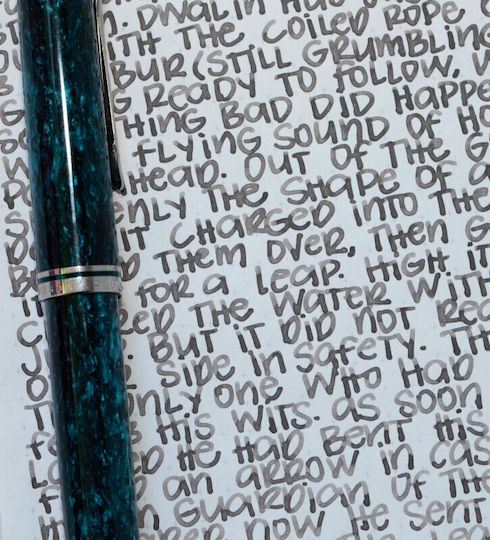 DWALIN HAD
ITH THE COILED ROPE
BUR (STILL GRUMBLING
G READY TO FOLLOW,
HING BAD DID HAPPE
FLYING SOUND OF HO
HEAD. OUT OF THE G
NLY THE SHAPE OF A
IT CHARGED INTO THE
THEM OVER, THEN G
FOR A LEAP. HIGH IT
ED THE WATER WITH
BUT IT DID NOT REA
SIDE IN SAFETY. TH
ONLY ONE WHO HAD
HIS WITS. AS SOON
HE HAD BENT HIS
AN ARROW IN CAS
GUARDIAN OF THE
NOW HE SENT